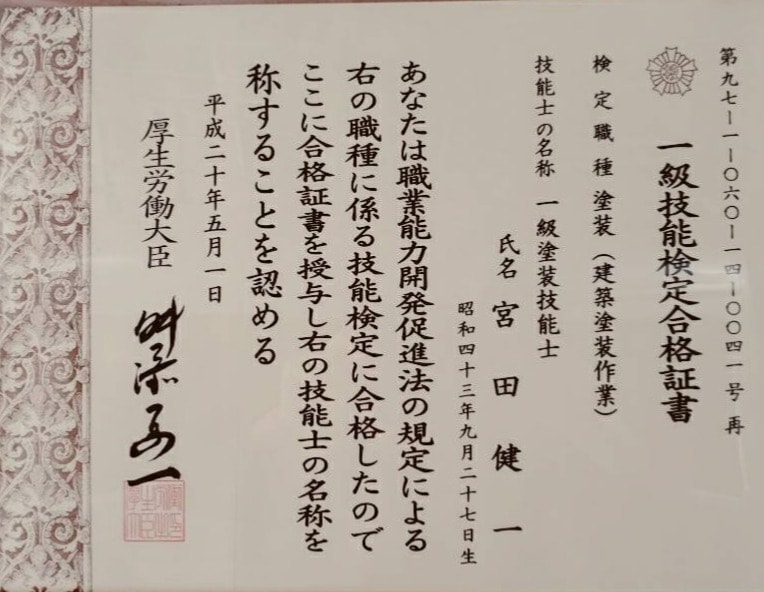 第九七ー一ー〇六〇ー一四ー〇〇四一号 再
一級技能検定合格証書
検定職種 塗装（建築塗装作業）
技能士の名称 一級塗装技能士
氏名 宮田健一
昭和四十三年九月二十七日生
あなたは職業能力開発促進法の規定による
右の職種に係る技能検定に合格したので
ここに合格証書を授与し右の技能士の名称を
称することを認める
平成二十年五月一日
厚生労働大臣 舛添要一